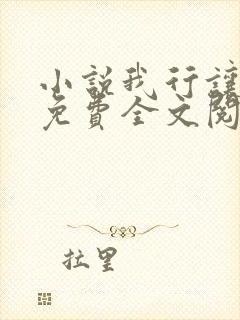 小説我行讓
免費全文閱
拉里